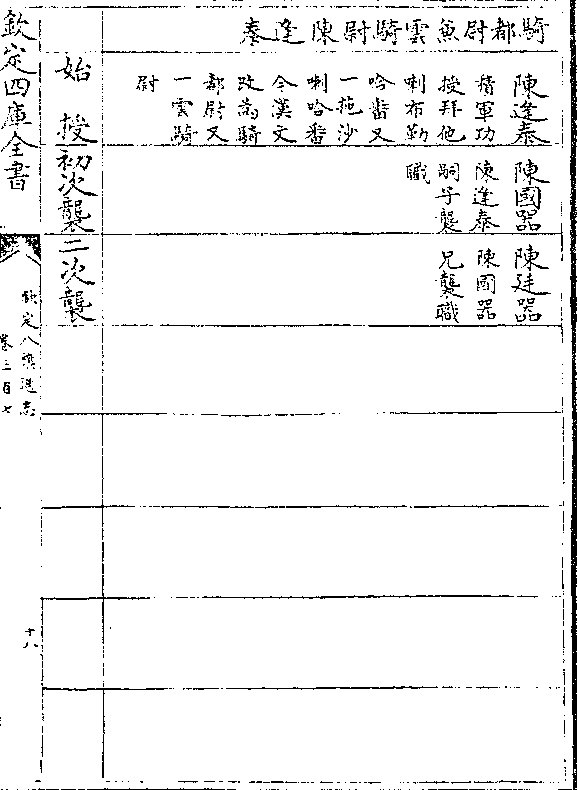 騎都尉兼雲騎尉陳逢泰
陳逢泰
積軍功
授拜他
喇布勒
哈番又
一拖沙
喇哈番
今漢文
改為騎
都尉又
一雲騎
尉
陳國器
陳逢泰
嗣子襲
職
陳廷器
陳國器
兄襲職
始授
初次襲
二次襲
欽定四庫全書
欽定八旗通志
卷三百七
十八